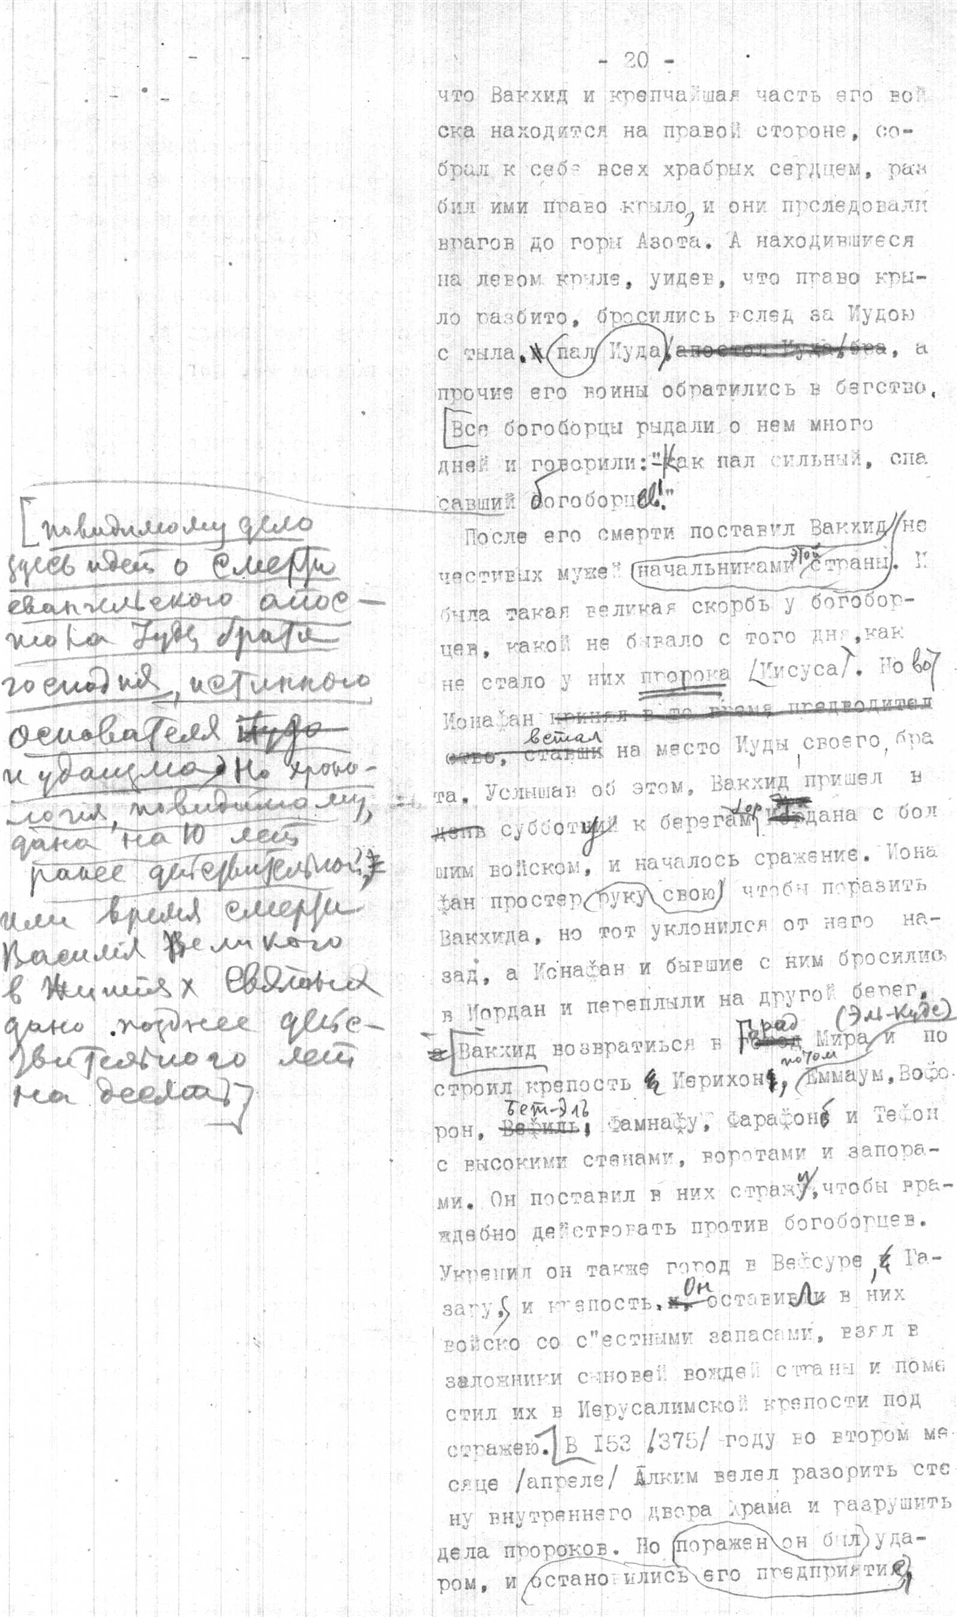 - 20 -
что Вакхид и крепчайшая часть его вой
ска находится на правой стороне, со-
брал к себе всех храбрых сердцем, раз
бил ими право крыло, и они прследовали
врагов до горы Азота. А находившиеся
на левом крыле, уидев, что право кры-
ло разбито, бросились вслед за Иудою
с тыла. пал Иуда, а
прочие его воины обратились в бегство.
[Все богоборцы рыдали о нем много
дней и говорили: "Как пал сильный, спа
савший богоборцев!"
После его смерти поставил Вакхид не
честивых мужей начальниками этой страны. И
была такая великая скорбь у богобор-
цев, какой не бывало с того дня, как
не стало у них пророка [Иисуса]. Но вот
Ионафан принял в то время предводител
ство, ставши встал на место Иуды своего бра
та. Услышав об этом, Вакхид пришел в
день субботний к берегам Иордана с бол
шим войском, и началось сражение. Иона
фан простер руку свою чтобы поразить
Вакхида, но тот уклонился от него на-
зад, а Ионафан и бывшие с ним бросились
в Иордан и переплыли на другой берег.
[Вакхид возвратиься в город Град Мира (Эль-Кудс) и по
строил крепость Иерихон, потом Еммаум, Вофо
рон, Вефиль, Бет-Эль Фамнафу, Фарафон и Тефон
с высокими стенами, воротами и запора-
ми. Он поставил в них стражу, чтобы вра-
ждебно действовать против богоборцев.
Укрепил он также город в Вефсуре, Га-
зару, и крепость. Он оставил в них
войско со с"естными запасами, взял в
заложники сыновей вождей страны и поме
стил их в Иерусалимской крепости под
стражею.] [В 153 /375/ году во втором ме
сяце /апреле/ Алким велел разорить сте
ну внутреннего двора храма и разрушить
дела пророков. Но поражен он был уда-
ром, и остановились его предприятия,
[повидимому дело
здесь идет о смерти
евангельского апос-
тола Иуды брата
господня, истинного
основателя Иуда
иудаизма) Но хроно-
логия, повидимому,
дана на 10 лет
ранее действительной,
или время смерти
Василия Великого
в Житиях Святых
дано позднее дейс-
твительного лет
на десять]